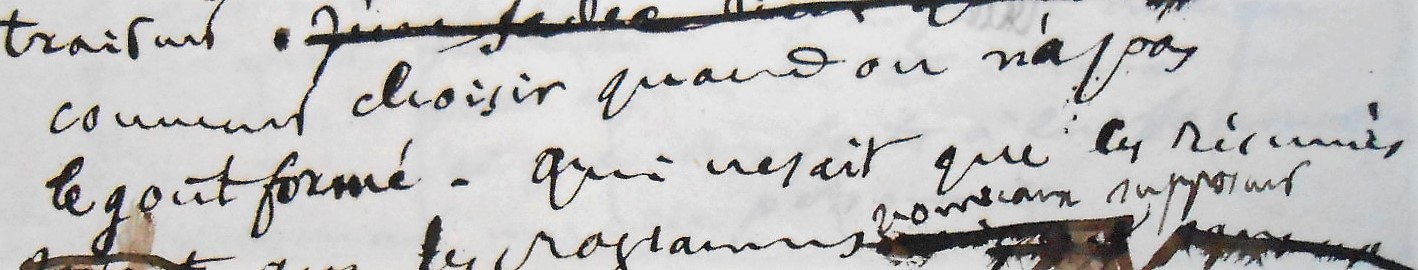 traisent .
comment choisir quand on n'a pas
le gout formé - qui ne sait que les résumés
nouveaux supposent
que les programmes